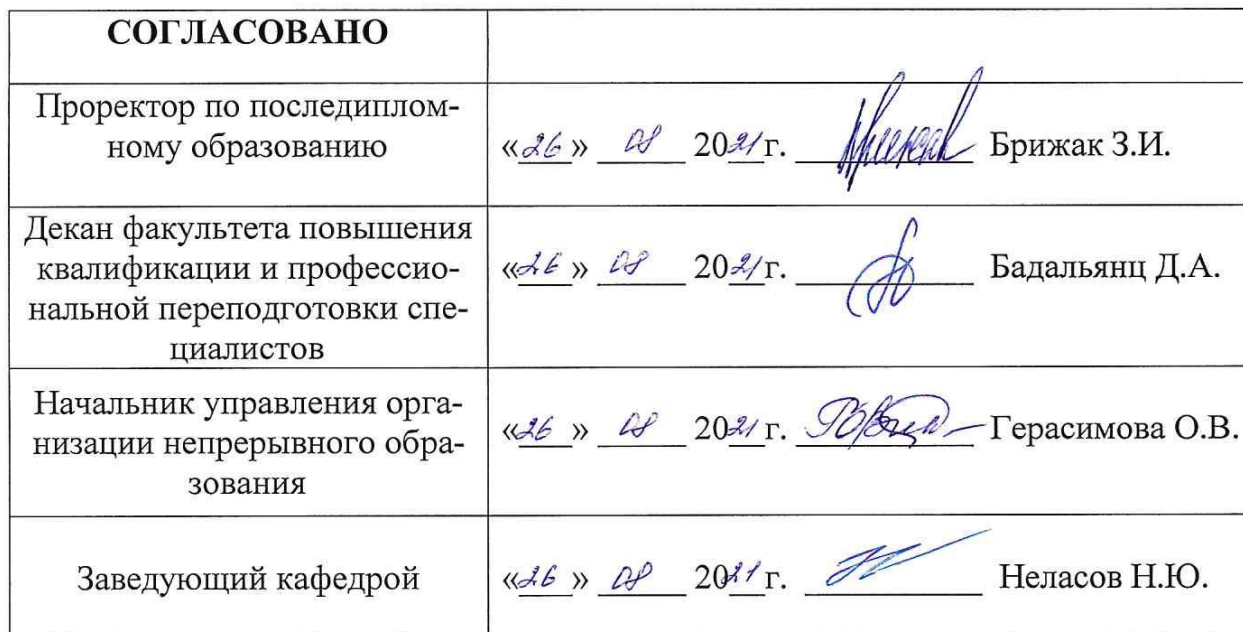 СОГЛАСОВАНО
Проректор по последиплом-
ному образованию
«26» 08 2021г. Брижак З.И.
Декан факультета повышения
квалификации и профессио-
нальной переподготовки спе-
циалистов
«26» 08 2021г. Бадальянц Д.А.
Начальник управления орга-
низации непрерывного обра-
зования
«26» 08 2021г. Герасимова О.В.
Заведующий кафедрой
«26» 08 2021г. Неласов Н.Ю.